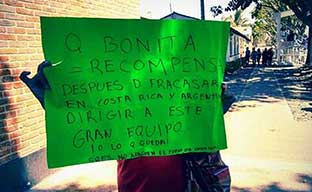 Q BONITA
= RECOMPENS
DESPUES D FRACASAR
EN COSTA RICA Y ARGENTIN
DIRIGIR A ESTE
GRAN EQUIPO
LO Q QUEDA!